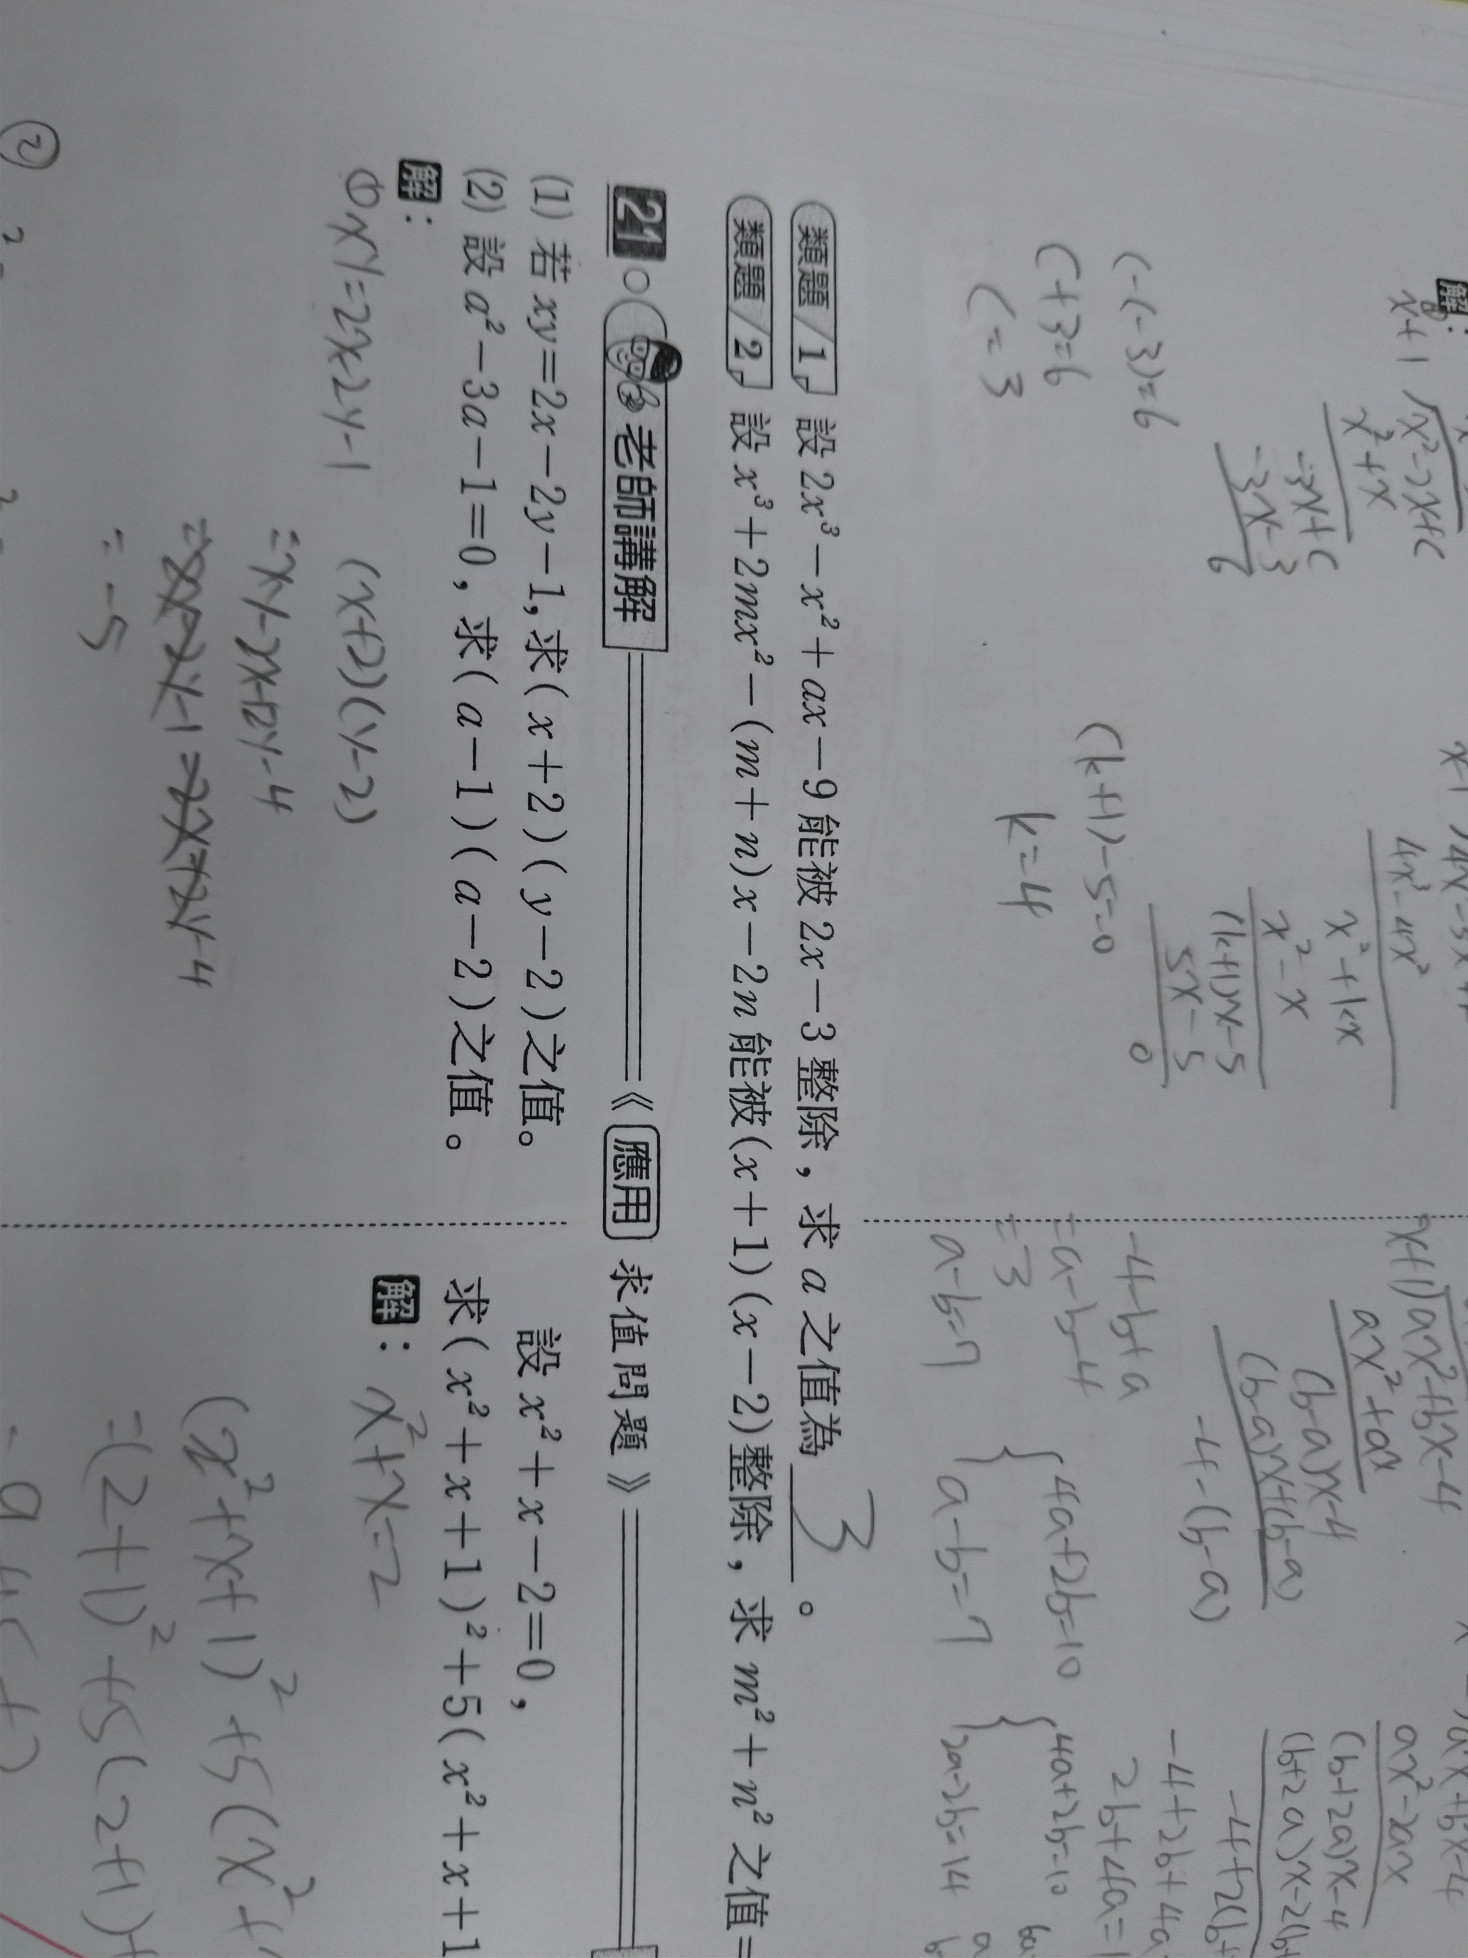 解:
x+1 x²-2x+c
x²+x
-3x+c
-3x-3
6
c-(-3)=6
c+3=6
c=3
4x³-4x²
x²+kx
x²-x
(k+1)x-5
5x-5
0
(k+1)-5=0
k=4
x+1 ax²+bx-4
ax²+ax
(b-a)x-4
(b-a)x+(b-a)
-4-(b-a)
-4-b+a
=a-b-4
=3
a-b=7
{4a+2b=10
a-b=7
ax²-2ax
(b+2a)x-4
{4a+2b=10
2a-2b=14
類題/1 設 2x³-x²+ax-9 能被 2x-3 整除,求 a 之值為 3 。
類題/2 設 x³+2mx²-(m+n)x-2n 能被(x+1)(x-2)整除,求 m²+n² 之值=
21 老師講解 《應用 求值問題》
(1) 若 xy=2x-2y-1,求(x+2)(y-2)之值。
(2) 設 a²-3a-1=0,求(a-1)(a-2)之值。
解:
① xy=2x-2y-1 (x+2)(y-2)
=xy-2x+2y-4
=-5
②
設 x²+x-2=0,
求(x²+x+1)²+5(x²+x+1
解: x²+x=2
(x²+x+1)²+5(x²+
=(2+1)²+5(2+1)+